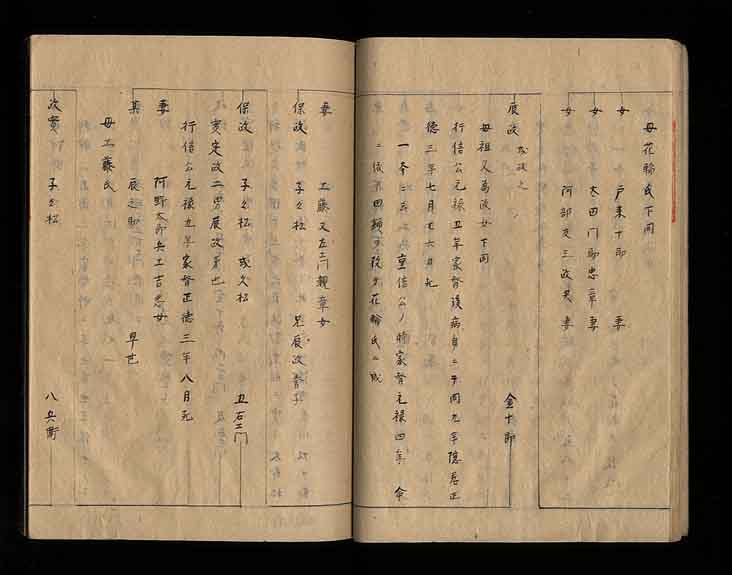 母花輪氏下同
女 戸来十郎 妻
女 太田門助忠章妻
女 阿部友三政英妻
展政 本政之 金十郎
母祖父為政女下同
行信公元禄丑年家督後病身ニテ同九子隠居正
徳三年七月六日死
一本ニ重信公ノ時家督元禄四年 命
ニ依テ四類ヲ改メ花輪氏ニ成
妻 工藤又左エ門親章女
保政 子々松 兄展政養子
保政 子々松 或久松 丑右エ門
実定政二男展政弟也
行信公元禄九年家督正徳三年八月死
妻 阿野太郎兵エ吉忠女
某 辰之助 早世
母工藤氏
次實 子々松 八兵衛